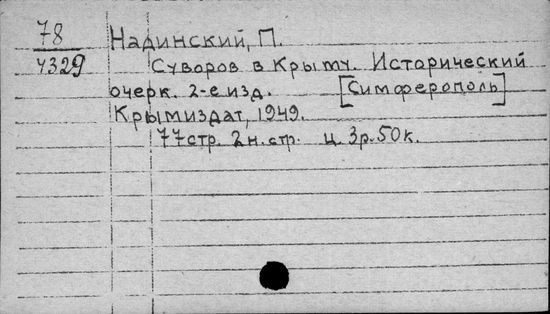 78 Надинский, П.
4329 Суворов в Крыму. Исторический
очерк. 2-е изд. [Симферополь]
Крымиздат, 1949.
77стр. 2н.стр. ц. 3р.50к.